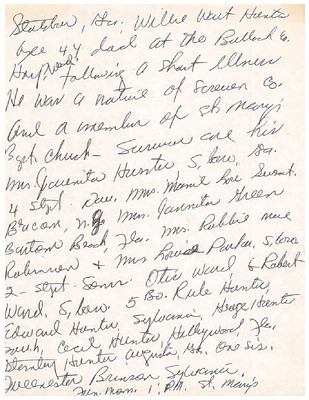 Statesboro, Ga. Willie West Hunter
age 44 died at the Bulloch Co.
Hosp. Wed. Following A short Illness
He was a native of Screven Co.
And a member of St Mary's
Bapt. Church - Survivor are his
Mrs. Juanita Hunter, S,boro, Ga.
4 Stept. Dau. Mrs. Mamie Lou
N.J. Mrs. Juannita Green
Beach, Fla. Mrs. Robbie mae
Robinson & Mrs Louise Parker, S,boro
2 - Stept. Sons. Otis Ward, & Robert
Ward. S,boro. 5 Bo. Rule Hunter,
Edward Hunter, Sylvania, George Hunter
Cecil Hunter, Hollywood Fla.
Stanley Hunter Augusta, Ga. One Sis.
Queenester Brinson Sylvania,
Fun. Mon. 1, P.M. St. Mary's